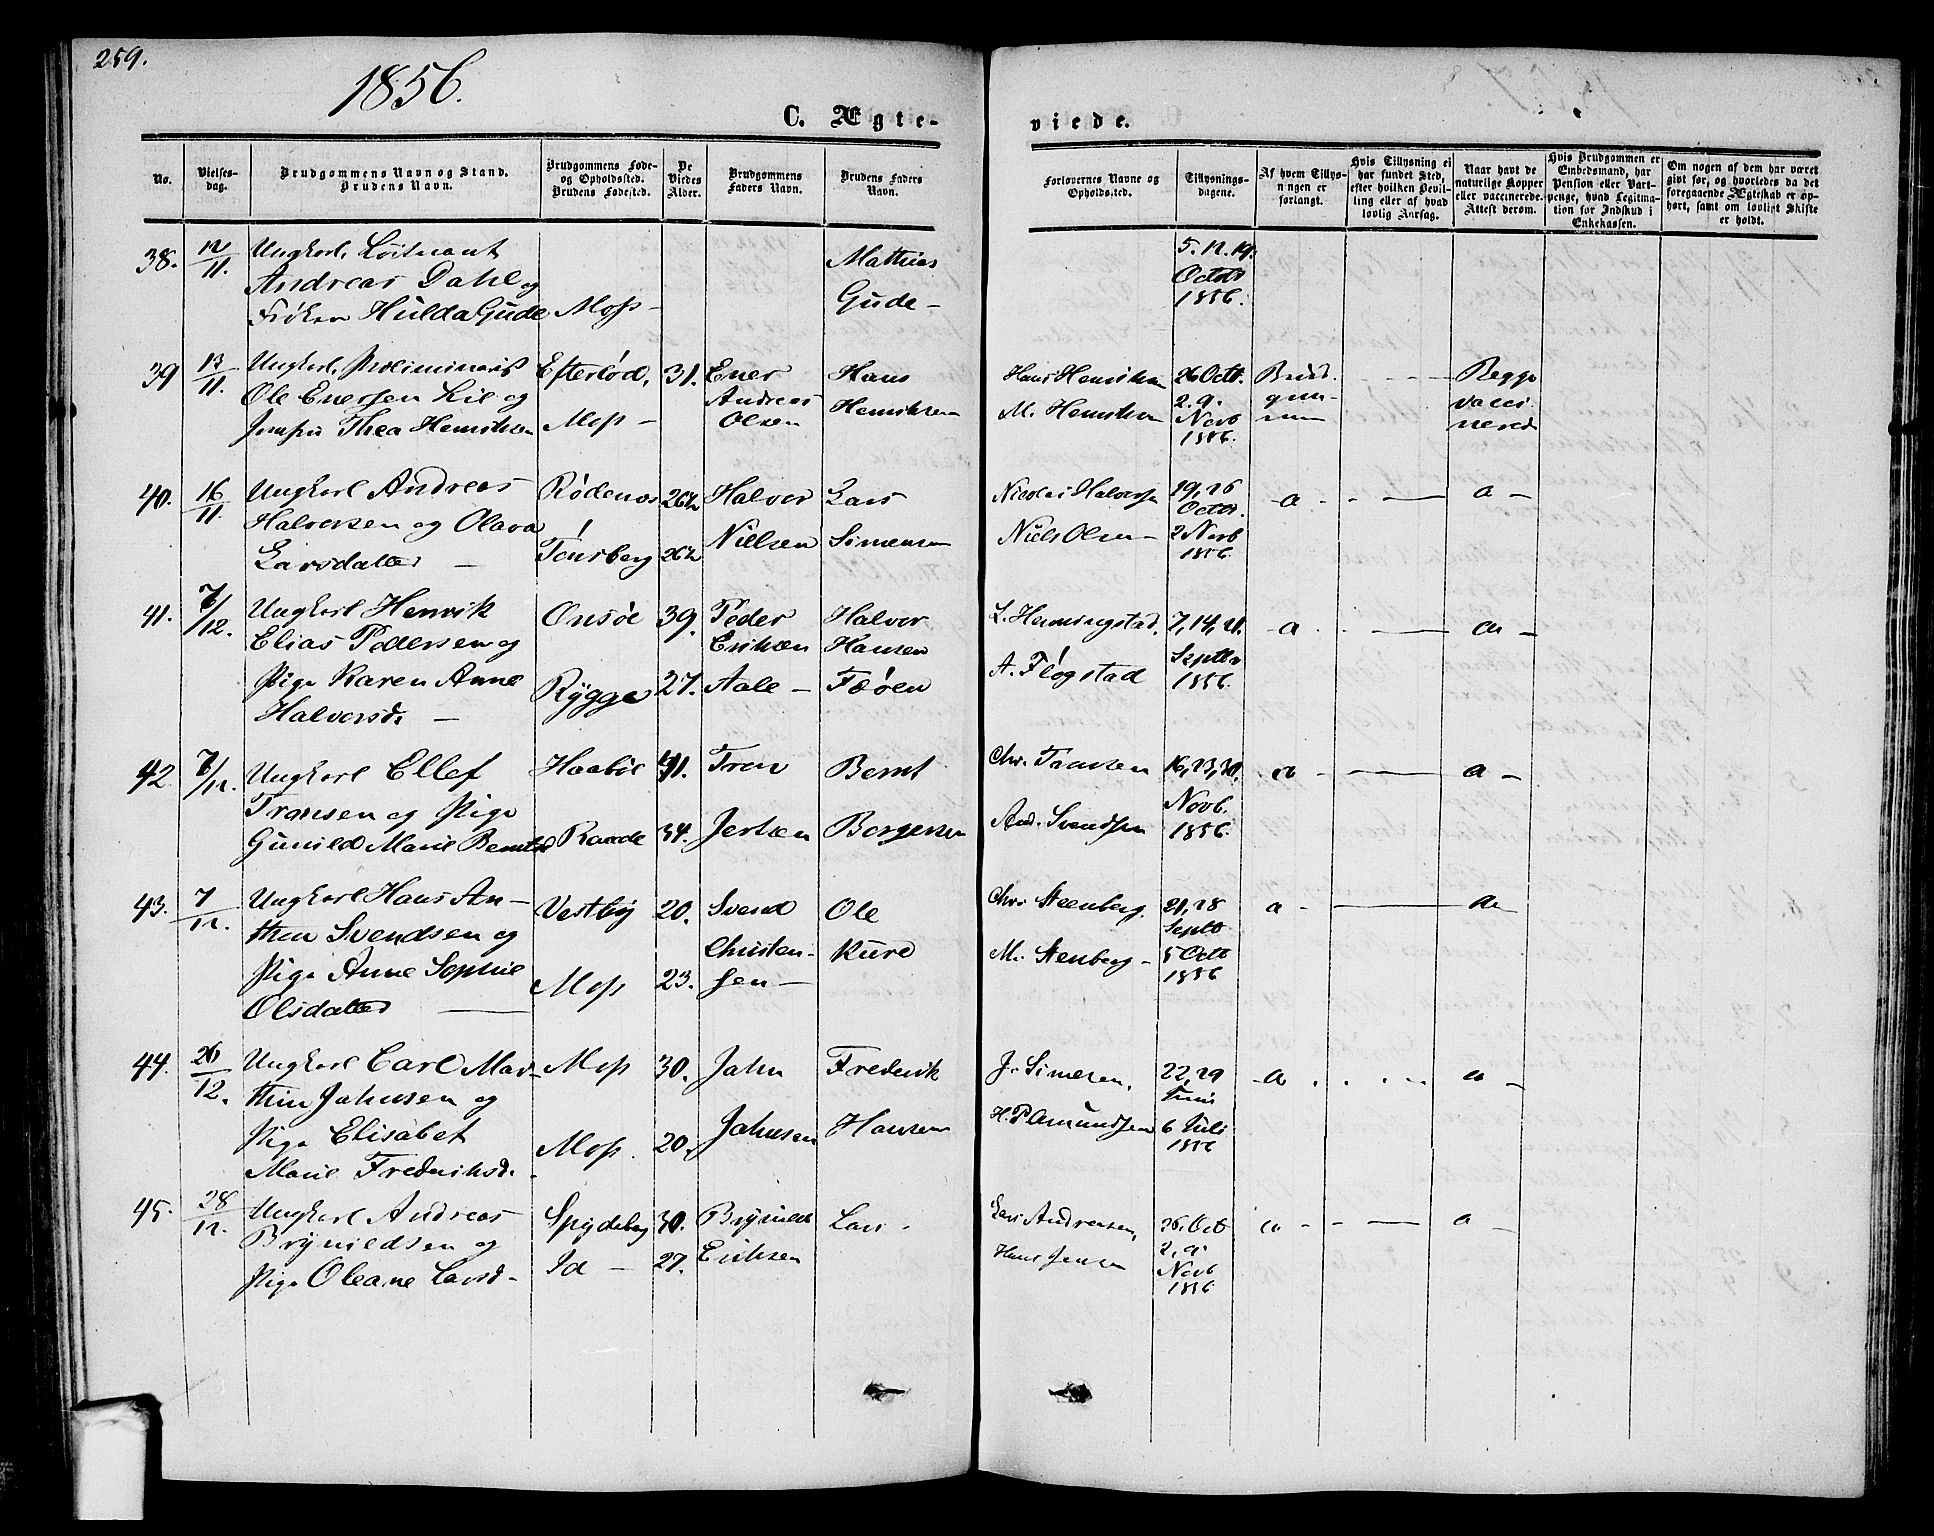 259.
1856.
C. Ægte-
viede.
No.
Vielses-
dag.
Brudgommens Navn og Stand.
Brudens Navn.
Brudgommens Føde-
og Opholdssted.
Brudens Fødested.
De
Viedes
Alder.
Brudgommens
Faders Navn.
Brudens Faders
Navn.
Forlovernes Navne og
Opholdssted.
Tillysnings-
dagene.
Af hvem Tillys-
ningen er
forlangt.
Hvis Tillysning ei
har fundet Sted,
efter hvilken Bevil-
ling eller af hvad
lovlig Aarsag.
Naar havt de
naturlige Kopper
eller vaccinerede.
Attest derom.
Hvis Brudgommen er
Embedsmand, har
Pension eller Vart-
penge, hvad Legitima-
tion for Indskud i
Enkekassen.
Om nogen af dem har været
gift før, og hvorledes da det
foregaaende Ægteskab er op-
hørt, samt om lovligt Skifte
er holdt.
38. 12/11. Ungkarl, Løitnant
Andreas Dahl og
Frøken Hulda Gude Moss -
Mathias
Gude -
5. 12. 19.
Octobr
1856.
39 13/11. Ungkarl, Præliminarist
Ole Enersen Lie og
Jomfru Thea Henriksen
Efterlød,
Moss -
31.
Ener
Andreas
Olsen
Hans
Henriksen
Hans Henriksen
M. Henriksen
26 Octr.
2. 9.
Novb
1856.
Brud-
gom-
men
Begge
vacci
nered
40. 16/11. Ungkarl Andreas
Halversen og Olava
Larsdatter -
Rødenes
Tønsberg
26½
26½
Halvor
Nielsen
Lars
Simensen
Nicolai Halversen
Niels Olsen -
19, 26
Octbr.
2 Novb
1856.
- a - - a -
41. 7/12. Ungkarl Henrik
Elias Pedersen og
Pige Karen Anne
Halversd. -
Onsøe
Rygge
39.
27.
Peder
Eriksen
Aale -
Halvor
Hansen
Fæøen
L. Henningstad.
A. Fløgstad
7, 14, 21.
Septbr
1856.
- a - - a -
42. 7/12. Ungkarl Ellef
Transen og Pige
Gunild Marie Berntsd
Haabøl
Raade
41.
34.
Tron
Jertsen
Bernt
Borgersen
Chr. Transen
And. Svendsen
16, 23, 30.
Novb.
1856.
a - - a -
43. 7/12. Ungkarl Hans An-
thon Svendsen og
Pige Anne Sophie
Olsdatter -
Vestby
Moss
20.
23.
Svend
Christen-
sen -
Ole
Kure
Chr. Steenberg.
M. Steenberg -
21, 28
Septb
5 Octb
1856
a - - a -
44. 26/12. Ungkarl Carl Mar-
thin Jahnsen og
Pige Elisabet
Marie Frederiksd.
Moss
Moss.
30.
20.
Jahn
Jahnsen
Frederik
Hansen
J. Simesen,
H. P. Amundsen
22, 29
Juni
6 Juli
1856
- a - a -
45. 28/12. Ungkarl Andreas
Brynildsen og
Pige Oleane Larsd -
Spydeberg
Id -
30.
27.
Brynild
Eriksen
Lars -
Lars Andreasen,
Hans Jensen
26. Oct
2, 9.
Novb
1856
a - - a -